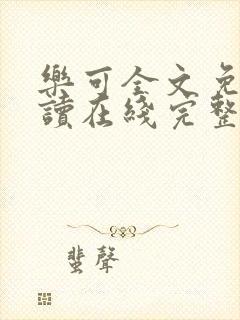 樂可全文免
讀在綫完整
蛩聲